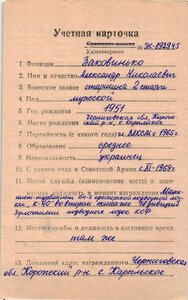 Учетная карточка
Удостоверения № Ж-192945
1. Фамилия Заковинько
2. Имя и отчество Александр Николаевич
3. Воинское звание старшина 2 статьи
4. Пол мужской
5. Год рождения 1951
6. Место рождения Черниговская обл., Короп-
ский р-н, с. Карильское
7. Партийность (с какого года) чл. ВЛКСМ с 1965 г.
8. Образование среднее
9. Национальность украинец
10. С какого года в Советской Армии с XI-1969 г.
11. Место службы (наименование части) и зани-
маемая должность в момент награждения
подводной лод-
ки К-
подводных лодок КСФ
12. Место службы и должность в настоящее время
там же
13. Домашний адрес награжденного Черниговская
обл. Коропский р-н с. Карильское